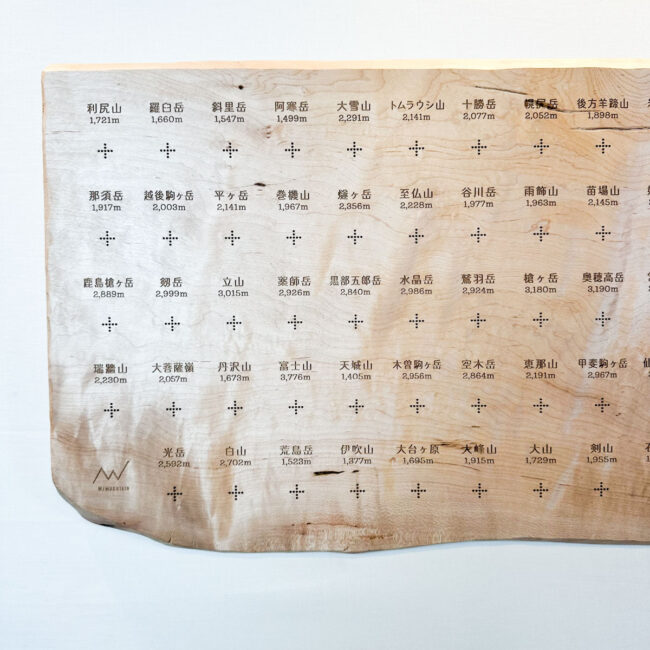 利尻山 羅臼岳 斜里岳 阿寒岳 大雪山 トムラウシ山 十勝岳 幌尻岳 後方羊蹄山
1,721m 1,660m 1,547m 1,499m 2,291m 2,141m 2,077m 2,052m 1,898m
那須岳 越後駒ヶ岳 平ヶ岳 巻機山 燧ヶ岳 至仏山 谷川岳 雨飾山 苗場山
1,917m 2,003m 2,141m 1,967m 2,356m 2,228m 1,977m 1,963m 2,145m
鹿島槍ヶ岳 剱岳 立山 薬師岳 黒部五郎岳 水晶岳 鷲羽岳 槍ヶ岳 奥穂高岳
2,889m 2,999m 3,015m 2,926m 2,840m 2,986m 2,924m 3,180m 3,190m
瑞牆山 大菩薩嶺 丹沢山 富士山 天城山 木曽駒ヶ岳 空木岳 恵那山 甲斐駒ヶ岳
2,230m 2,057m 1,673m 3,776m 1,405m 2,956m 2,864m 2,191m 2,967m
光岳 白山 荒島岳 伊吹山 大台ヶ原 大峰山 大山 剣山
2,592m 2,702m 1,523m 1,377m 1,695m 1,915m 1,729m 1,955m